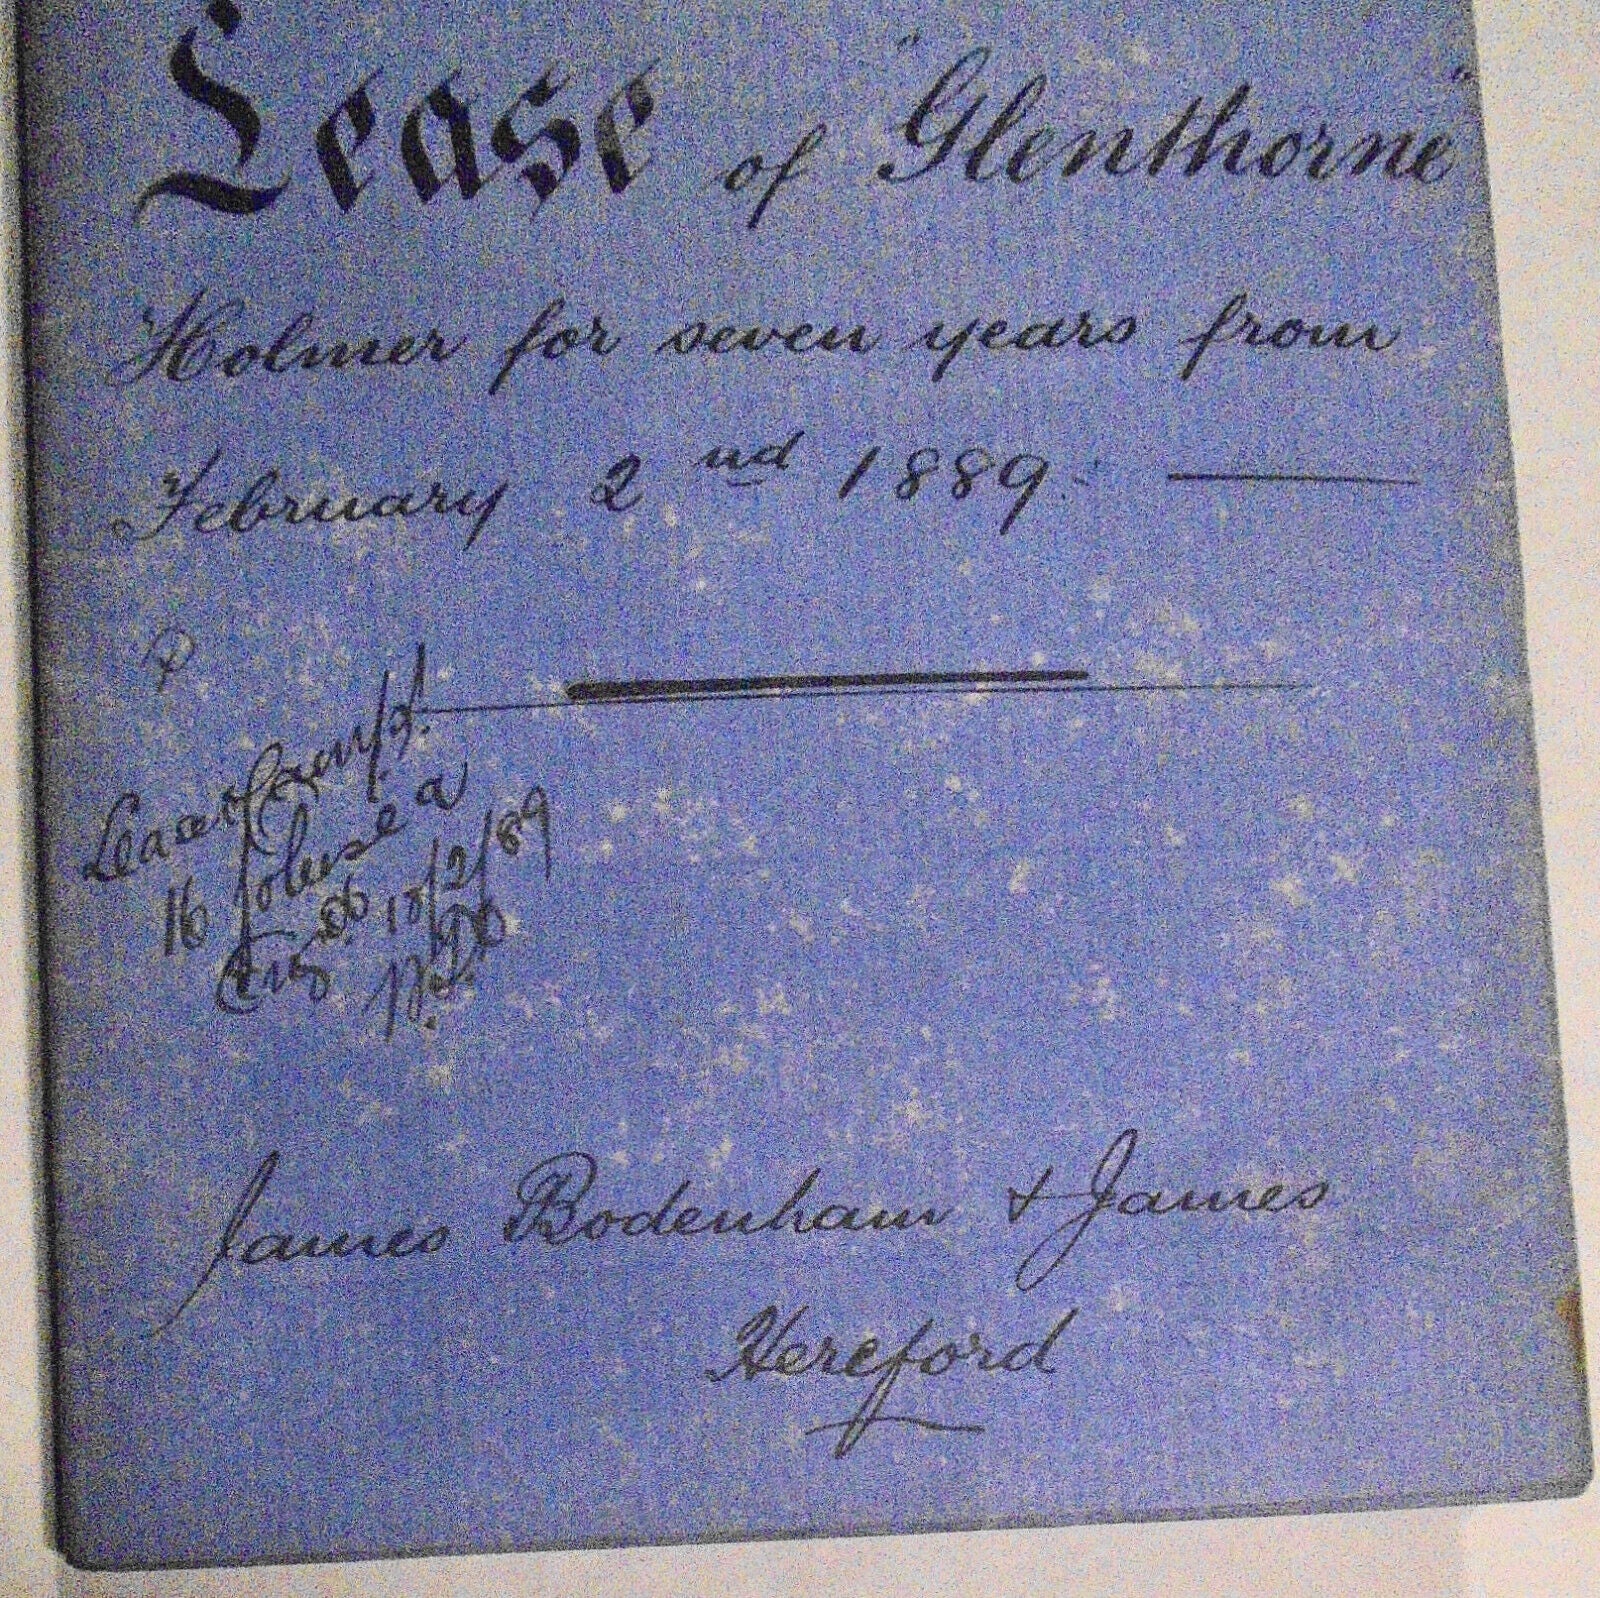 Lease of "Glenthorne"
Holmer for seven years from
February 2nd 1889:
Lease
16 folios ea
18/2/89
James Bodenham & James
Hereford